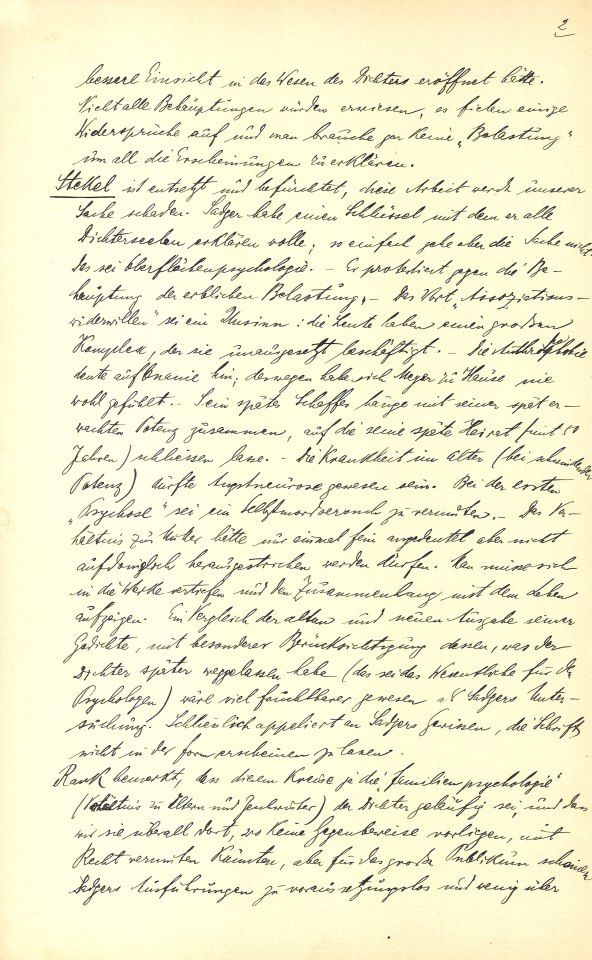 2
bessere Einsicht in das Wesen des Dichters eröffnet hätte.
Nicht alle Behauptungen würden erwiesen, es fielen einige
Widersprüche auf und man brauche gar keine „Belastung"
um all die Erscheinungen zu erklären.
Stekel ist entsetzt und befürchtet, diese Arbeit werde unserer
Sache schaden. Sadger habe einen Schlüssel mit dem er alle
Dichterseelen erklären wolle; so einfach gehe aber die Sache nicht.
Das sei Oberflächenpsychologie. – Er protestiert gegen die Be-
hauptung der erblichen Belastung. – Das Wort „Assoziations-
widerwillen" sei ein Unsinn: die Leute haben einen großen
Komplex, der sie unausgesetzt beschäftigt. – Die Anthropophobie
deute auf Onanie hin; deswegen habe sich Meyer zu Hause nie
wohl gefühlt. – Sein spätes Schaffen hänge mit seiner spät er-
wachten Potenz zusammen, auf die seine späte Heirat (mit 50
Jahren) schliessen lasse. – Die Krankheit im Alter (bei schwindender
Potenz) dürfte Angstneurose gewesen sein. Bei der ersten
„Psychose" sei ein Selbstmordversuch zu vermuten. – Das Ver-
hältnis zur Mutter hätte nur einmal fein angedeutet aber nicht
aufdringlich herausgestrichen werden dürfen. Man müsse sich
in die Werke vertiefen und den Zusammenhang mit dem Leben
aufzeigen. Ein Vergleich der alten und neuen Ausgabe seiner
Gedichte, mit besonderer Berücksichtigung dessen, was der
Dichter später weggelassen habe (das sei das Wesentliche für den
Psychologen) wäre viel fruchtbarer gewesen als Sadgers Unter-
suchung. Schliesslich appeliert an Sadgers Gewissen, die Schrift
nicht in der Form erscheinen zu lassen.
Rank bemerkt, dass diesem Kreise ja die „Familienpsychologie"
(Verhältnis zu Eltern und Geschwister) der Dichter geläufig sei, und dass
wir sie überall dort, wo keine Gegenbeweise vorliegen, mit
Recht vermuten könnten, aber für das große Publikum scheinen
Sadgers Ausführungen zu voraussetzungslos und wenig über